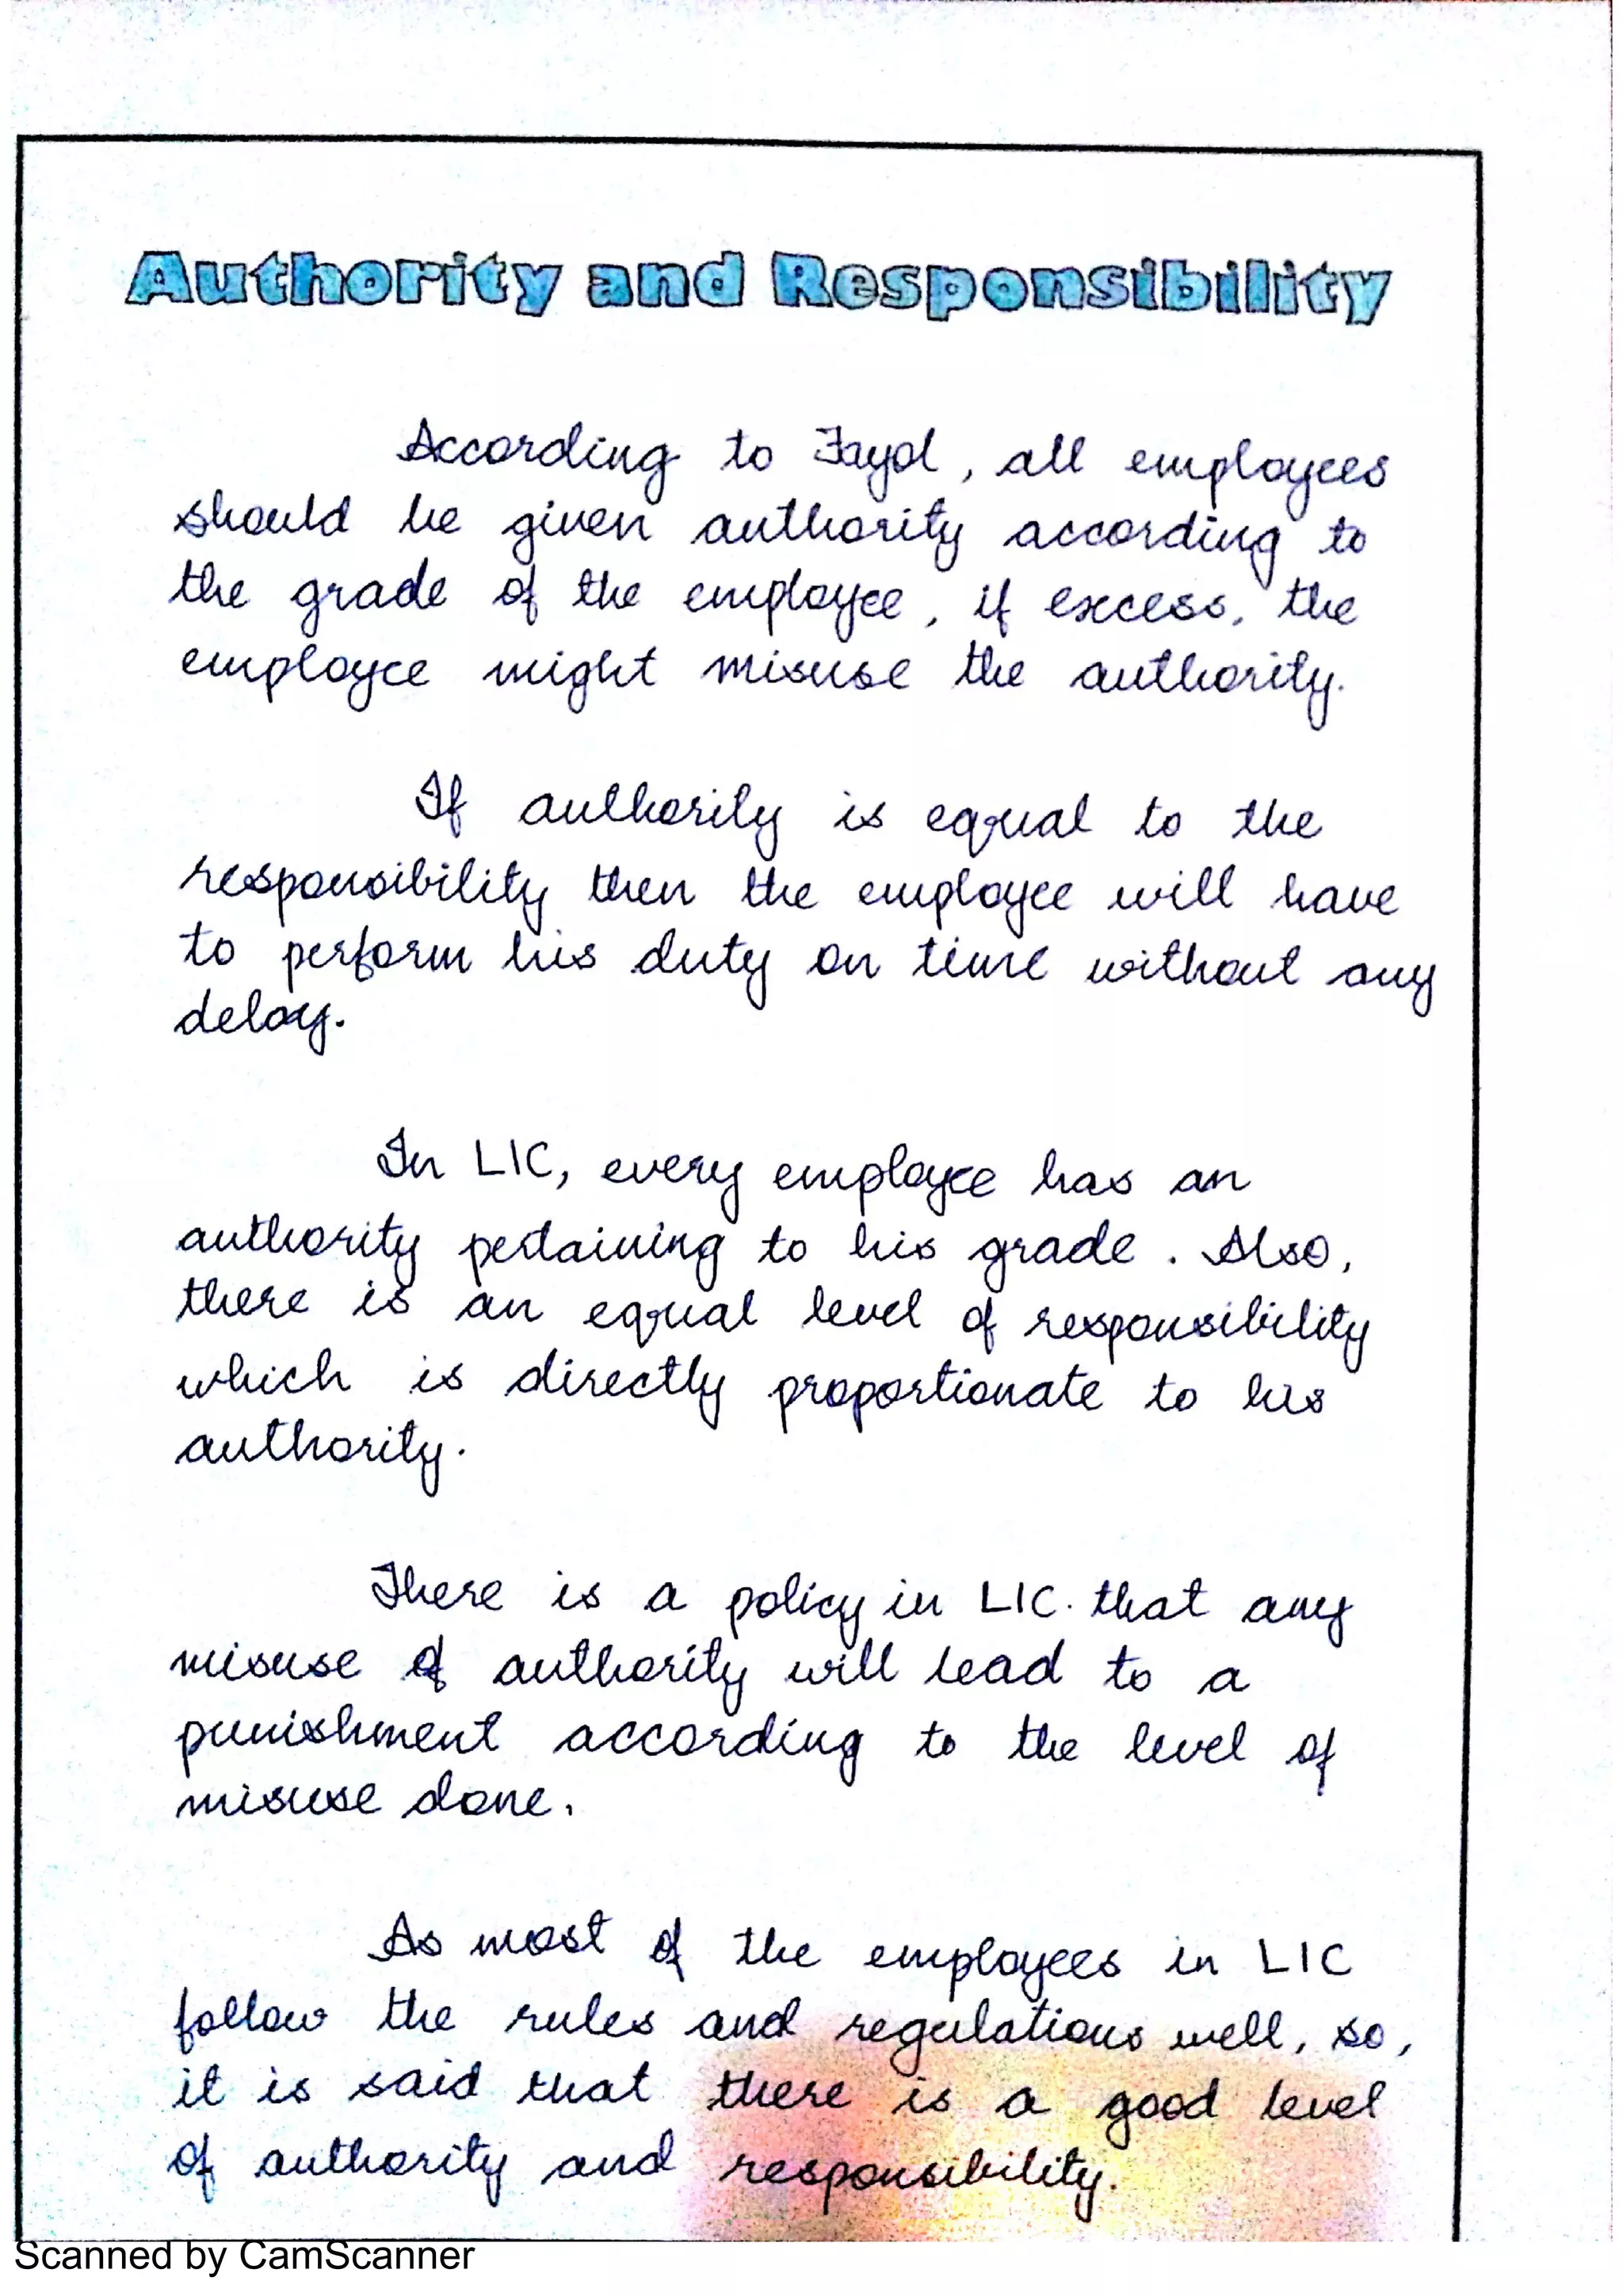 Authority and Responsibility
According to Fayol, all employees
should be given authority according to
the grade of the employee, if excess, the
employee might misuse the authority.
If authority is equal to the
responsibility then the employee will have
to perform his duty on time without any
delay.
In LIC, every employee has an
authority pertaining to his grade. Also,
there is an equal level of responsibility
which is directly proportionate to his
authority.
There is a policy in LIC. that any
misuse of authority will lead to a
punishment according to the level of
misuse done.
As most of the employees in LIC
follow the rules and regulations well, so,
it is said that there is a good level
of authority and responsibility.
Scanned by CamScanner